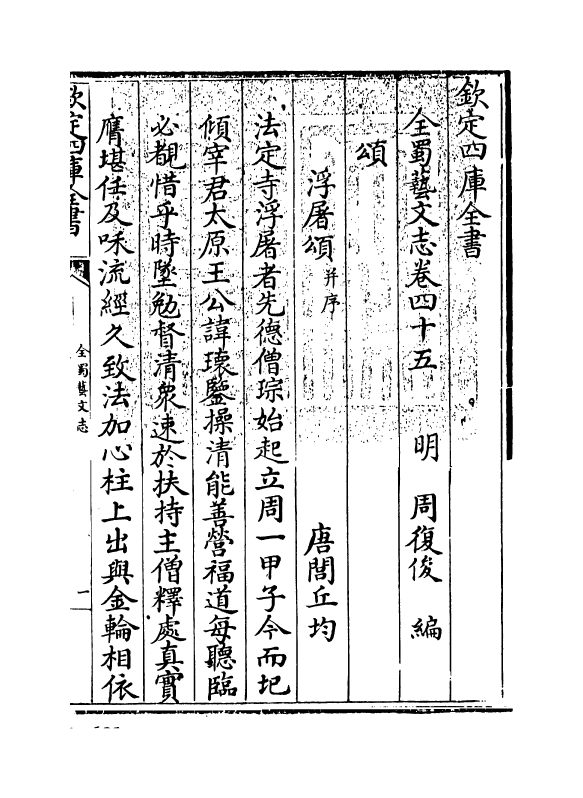 欽定四庫全書
全蜀藝文志卷四十五　明　周復俊　編
頌
浮屠頌并序　唐閭丘均
法定寺浮屠者先德僧琮始起立周一甲子今而圮
傾宰君太原王公諱瓌鑒操清能善營福道每聽臨
必覩惜乎時墜勉督清衆速於扶持主僧釋處真實
膺堪任及咊流經久致法加心柱上出與金輪相依
欽定四庫全書
全蜀藝文志
一